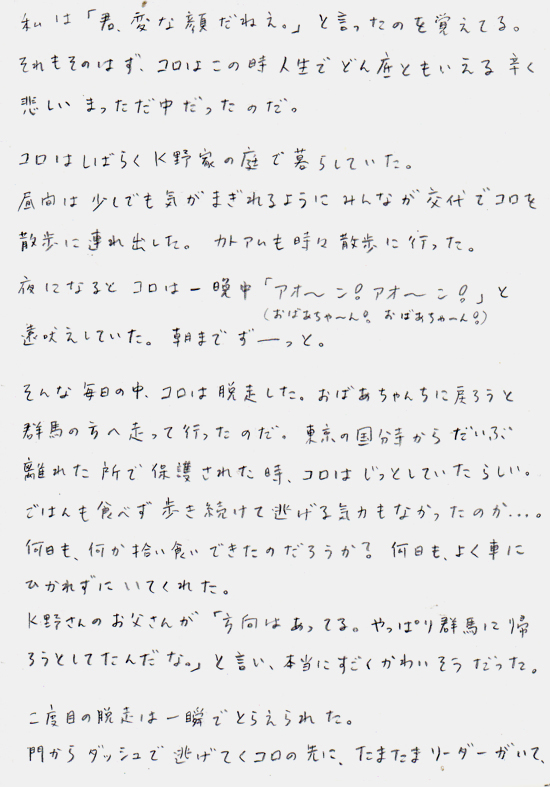 私は「君、変な顔だねえ。」と言ったのを覚えてる。
それもそのはず、コロはこの時人生でどん底ともいえる辛く
悲しいまっただ中だったのだ。
コロはしばらくK野家の庭で暮らしていた。
昼向は少しでも気がまぎれるようにみんなが交代でコロを
散歩に連れ出した。カトアムも時々散歩に行った。
夜になるとコロは一晩中「アオ〜ン!アオ〜ン!」と
(おばあちゃ〜ん!おばあちゃ〜ん!)
遠吠えしていた。朝までずーっと。
そんな毎日の中、コロは脱走した。おばあちゃんちに戻ろうと
群馬の方へ走って行ったのだ。東京の国分寺からだいぶ
離れた所で保護された時、コロはじっとしていたらしい。
ごはんも食べず歩き続けて逃げる気力もなかったのか…。
何日も、何か拾い食いできたのだろうか?何日も、よく車に
ひかれずにいてくれた。
K野さんのお父さんが「方向はあってる。やっぱり群馬に帰
ろうとしてたんだな。」と言い、本当にすごくかわいそうだった。
二度目の脱走は一瞬でとらえられた。
門からダッシュで逃げてくコロの先に、たまたまリーダーがいて、